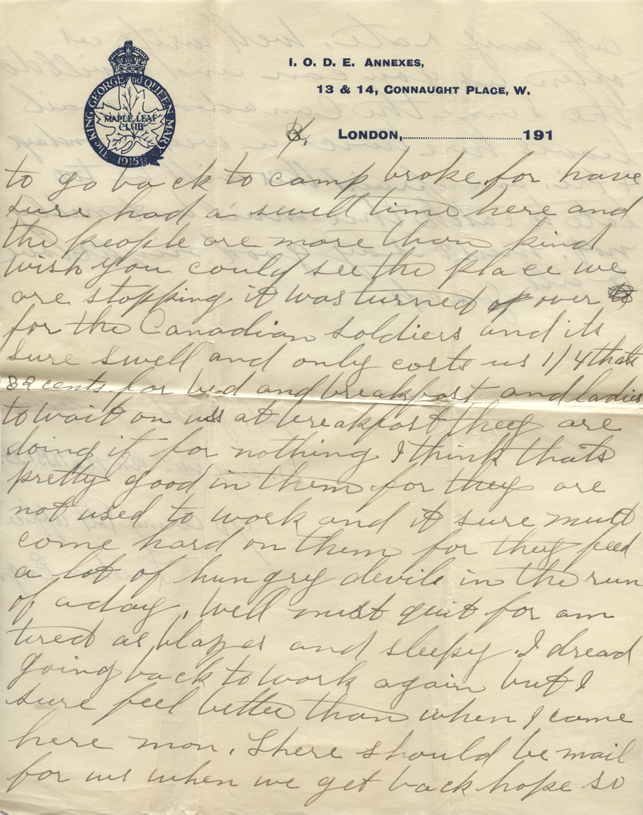 I. O. D. E. ANNEXES,
13 & 14, CONNAUGHT PLACE, W.
THE KING GEORGE and QUEEN MARY
MAPLE LEAF
CLUB
1915
LONDON,..............................191
to go back to camp broke, for have
sure had a swell time here and
the people are more than kind
wish you could see the place we
are stopping it was turned over
for the Canadian soldiers and its
sure swell and only costs us 1/4 thats
32 cents for bed and breakfast and ladies
to wait on us at breakfast they are
doing it for nothing I think thats
pretty good in them for they are
not used to work and it sure must
come hard on them for they feed
a lot of hungry devils in the run
of a day. Well must quit for am
tired as blazes and sleepy. I dread
going back to work again but I
sure feel better than when I came
here mon. There should be mail
for us when we get back hope so